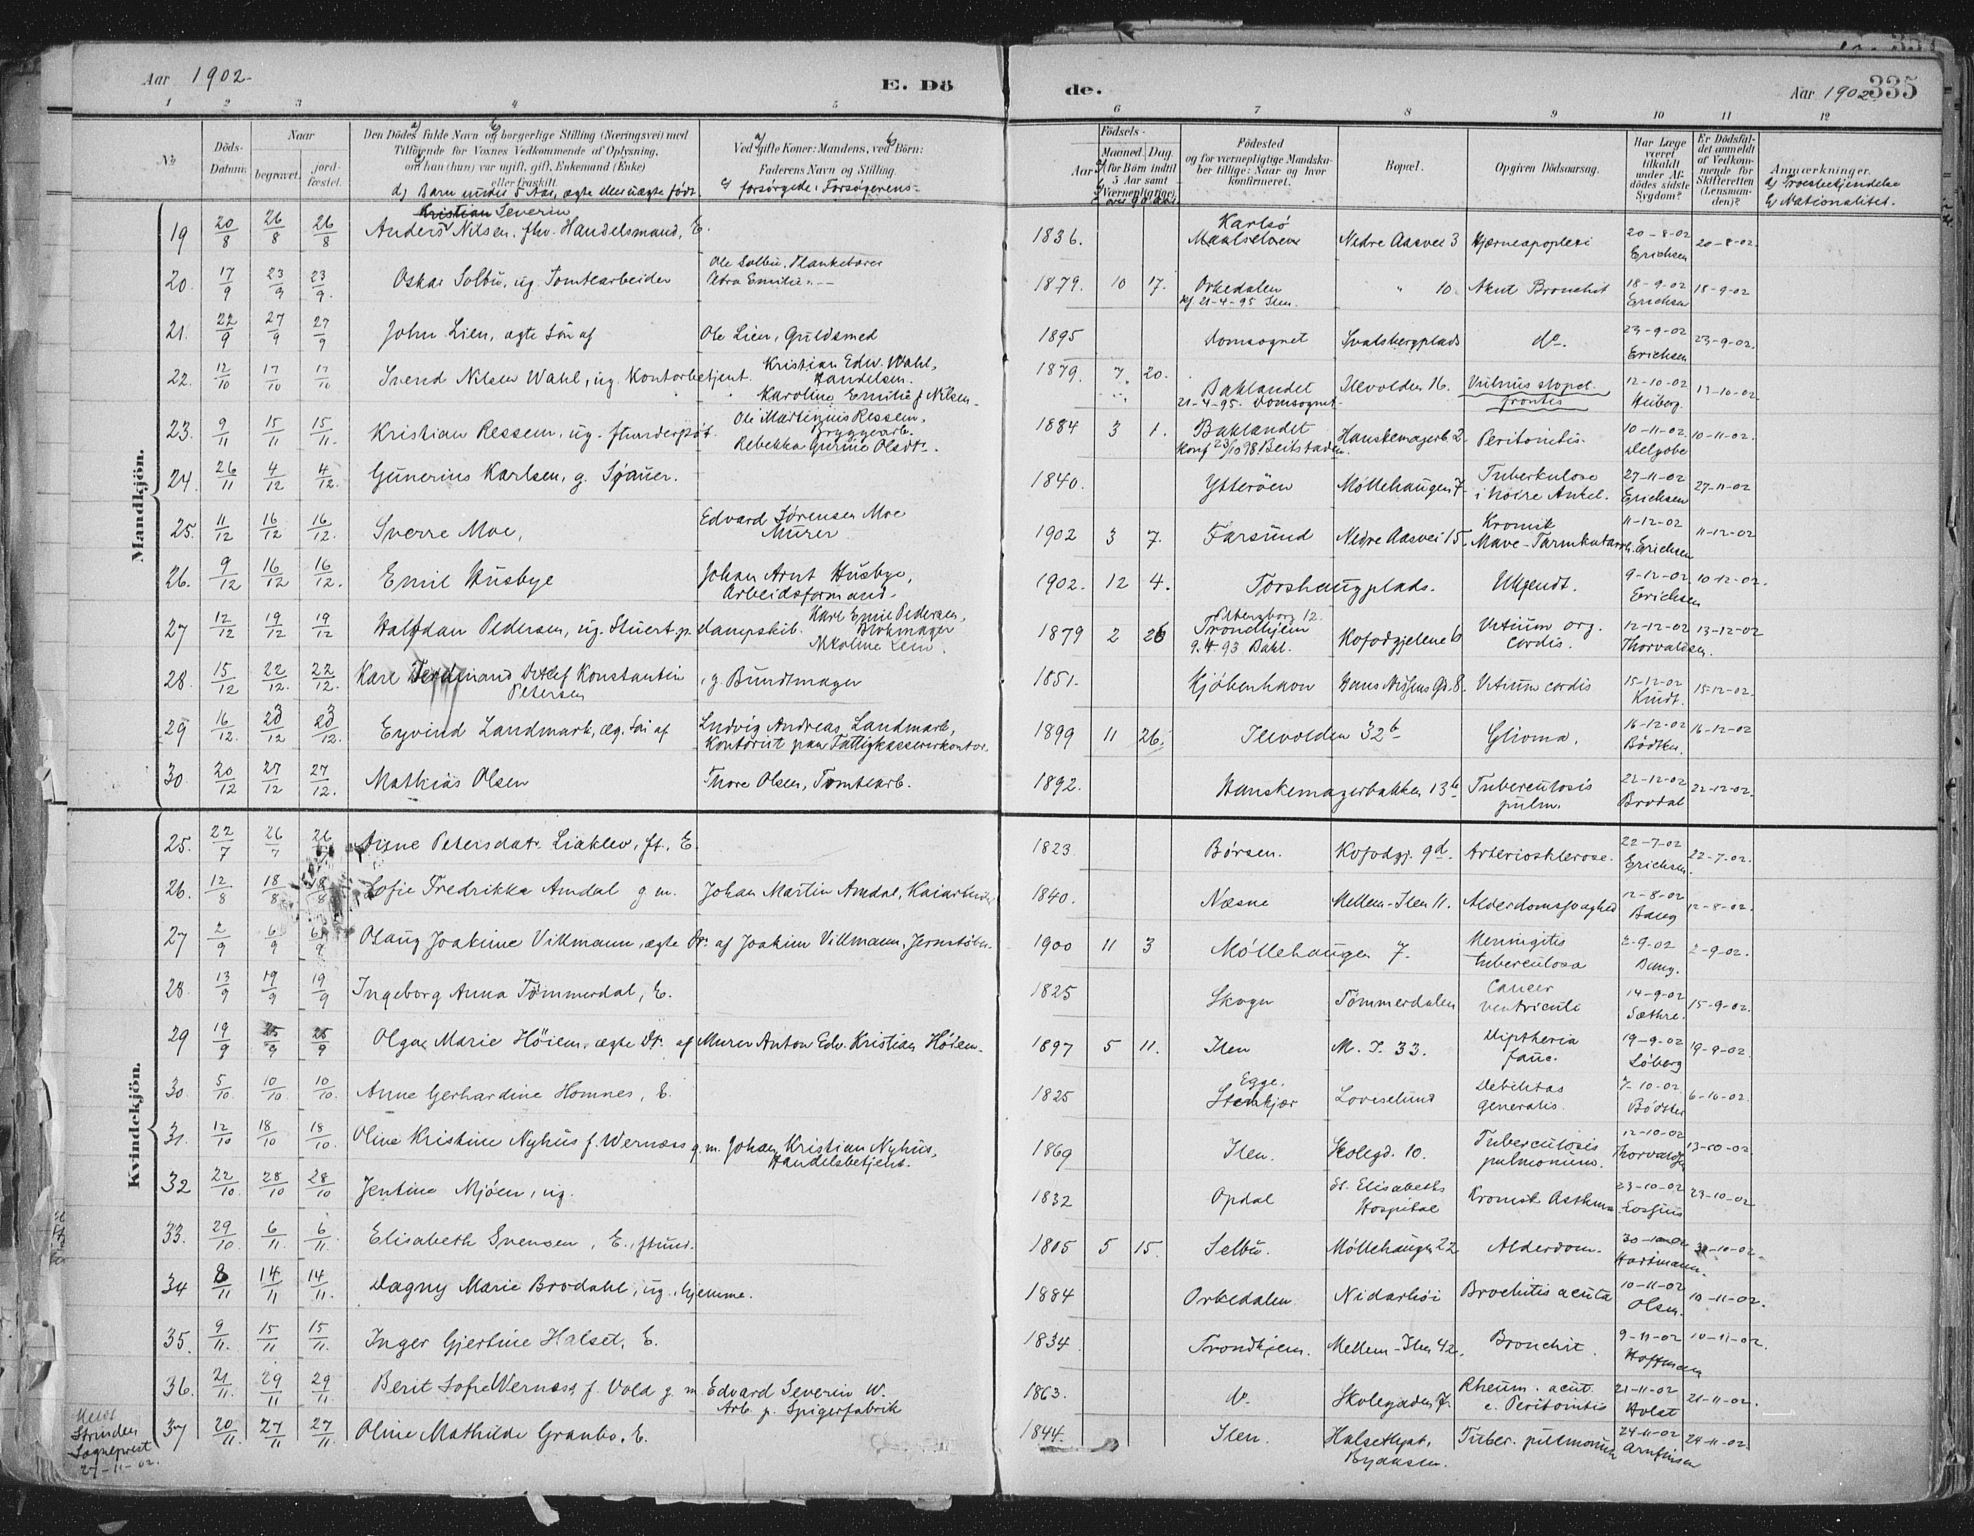 Aar 1902.
E. Dö
de.
Aar 1902
335
1 2 3 4 5 6 7 8 9 10 11 12
No
Döds-Datum.
Naar
begravet.
jord-fæstet.
Den Dödes fulde Navn og borgerlige Stilling (Næringsvei) med
Tilföiende for Voxnes Vedkommende af Oplysning,
om han (hun) var ugift, gift, Enkemand (Enke)
eller fraskilt.
d) Barn under 5 Aar, ægte eller uægte født.
Ved gifte Koner: Mandens, ved Börn:
Faderens Navn og Stilling.
c) forsørgede: Forsørgerens-
Födsels-
Aar
Maaned. Dag.
(for Börn indtil
5 Aar samt
Værnepligtige).
over 90 Aar.
Födested
og for værnepligtige Mandska-
ber tillige: Naar og hvor
konfirmeret.
Bopæl.
Opgiven Dödsaarsag.
Har Læge
været
tilkaldt
under Af-
dödes sidste
Sygdom?
Er Dödsfal-
det anmeldt
af Vedkom-
mende for
Skifteretten
(Lensman-
den)?
Anmærkninger.
a) Troesbekjendelse
b) Nationalitet.
Mandkjön.
Kristian Severin
19 20/8 26/8 26/8 Anders Nilsen, fhv. Handelsmand, E. 1836. Karlsö Maalselven Nedre Aasvei 3 Hjerneapoplexi 20-8-02 Erichsen 20-8-02
20. 17/9 23/9 23/9. Oskar Solbu, ug. Tomtearbeider Ole Solbu, Plankebærer Petra Emilie 1879. 10 17. Orkedalen kf 21-4-95 Ilen. " 10. Akut Bronchit 18-9-02 Erichsen 18-9-02
21. 22/9 27/9 27/9 John Lien, ægte Søn af Ole Lien, Guldsmed 1895 Domsognet Svalsbergplads do. 23-9-02 Erichsen 23-9-02.
22. 12/10 17/10 17/10 Svend Nilsen Wahl, ug. Kontorbetjent. Kristian Edw. Wahl, Handelsm. Karoline Emilie f. Nilsen 1879. 7 20. Baklandet 21-4-95. Domsognet. Ilevolden 16. Vulnus slopet. frontis 12-10-02 Heiberg. 13-10-02
23. 9/11 15/11 15/11. Kristian Ressem, ug. fhunderstøt. Ole Martinius Ressem, Bryggearb. Rebekka Gurine Olsdtr. 1884 3 1. Baklandet konf 23/10 98 Beitstaden. Hanskemagerb. 2. Peritonitis. 10-11-02. Delgobe 10-11-02.
24. 26/11 4/12 4/12. Gunerius Karlsen, g. Sjauer. 1840. Ytterøen Møllehaugen 7. Tuberkulose i høire Ankel. 27-11-02 Erichsen 27-11-02
25. 11/12 16/12 16/12. Sverre Moe, Edvard Sørensen Moe Murer 1902 3 7. Farsund Nedre Aasvei 15. Kronisk Mave-Tarmkatarrh. 11-12-02 Erichsen 11-12-02
26. 9/12 16/12 16/12. Emil Husbye Johan Arnt Husbye, Arbeidsformand. 1902. 12 4. Torshaugplads. Ukjendt. 9-12-02 Erichsen 10-12-02.
27 12/12 19/12 19/12 Halfdan Pedersen, ug. Stuert p. Dampskib. Karl Emil Pedersen, Blokmager 1879 2 26 Trondhjem 9.4.93 Bakl. Kofodgjelene 6 Vitium org. cordis. 12-12-02 Thorvaldsen. 13-12-02
28. 15/12 22/12. 22/12. Karl Ferdinand Detlef Konstantin Petersen, g. Bundtmager 1851. Kjøbenhavn Hans Nissens Gd. 8. Vitium cordis 15-12-02 Knudt. 15-12-02.
29 16/12. 23/12 23/12. Eyvind Landmark, æg. Søn af Ludvig Andreas Landmark, Kontorist paa Fattigkassererkontor. 1899 11 26. Ilevolden 32b Glioma. 16-12-02 Bödtker. 16-12-02
30. 20/12 27/12 27/12. Mathias Olsen Thore Olsen, Tomtearb. 1892. Hanskemagerbakken 13b Tuberculosis pulm. 22-12-02 Brodal 22-12-02.
Kvindekjön.
25. 22/7 26/7 26/7 Anne Petersdat. Liaklev, ft. E. 1823 Børsen. Kofodgj. 9d. Arteriosklerose. 22-7-02 Erichsen. 22-7-02.
26. 12/8 18/8 18/8 Sofie Fredrikke Amdal g m. Johan Martin Amdal, Kaiarbeider 1840. Næsne Mellem-Ilen 11. Alderdomssvaghed 12-8-02 Bang 12-8-02.
27 2/9 6/9 6/9 Olaug Joakime Villmann, ægte Dr. af Joakim Villmann, Jernstøber. 1900 11 3 Møllehaugen 7. Meningitis tuberculosa 2-9-02 Bang. 2-9-02.
28 13/9 19/9 19/9 Ingeborg Anna Tømmerdal, E. 1825 Skogn Tømmerdalen Cancer ventriculi 14-9-02 Sæthre. 15-9-02.
29 19/9 25/9 25/9 Olga Marie Høiem, ægte Dr. af Murer Anton Edv. Kristian Høiem. 1897 5 11. Ilen M. I. 33. Diptheria fauc. 19-9-02 Løberg 19-9-02.
30 5/10 10/10 10/10 Anne Gerhardine Homnes, E. 1825 Egge. Stenkjær Loviselund Debilitas generalis. 7-10-02 Bödtker 6-10-02.
31. 12/10 18/10 18/10. Oline Kristine Nyhus f. Wernæss g.m. Johan Kristian Nyhus, Handelsbetjent. 1869 Ilen. Skolegd. 10. Tuberculosis pulmonum. 12-10-02 Thorvaldsen 13-10-02
32 22/10. 28/10 28/10 Jentine Mjøen, ug. 1832 Opdal St. Elisabeths Hospital Kronisk Asthma 23-10-02 Lossius 23-10-02
33. 29/10. 6/11. 6/11. Elisabeth Svensen, E., fhund. 1805 5 15. Selbu. Møllehaugen 22 Alderdom. 30-10-02 Hartmann. 30-10-02.
34 8/11 14/11 14/11. Dagny Marie Brodahl, ug., hjemme. 1884 Orkedalen. Nidarhøi Brochitis acuta 10-11-02 Olsen. 10-11-02.
35. 9/11. 15/11 15/11. Inger Gjertine Halset, E. 1834 Trondhjem. Mellem-Ilen 42. Bronchit. 9-11-02 Hoffmann 10-11-02.
36. 21/11. 29/11 29/11. Berit Sofie Wernæss f. Vold g. m Edvard Severin W. Arb. p. Spigerfabrik 1863. do. Skolegaden 7. Rheum. acut. c. Peritonitis 21-11-02 Holst 21-11-02.
37 20/11. 27/11 27/11. Oline Mathilde Granbo, E. 1844. Ilen. Halsethpt. Byaasen. Tuber. pulmonum 24-11-02 Arnfinsen 24-11-02
Meldt
Strinden
Sogneprest
27-11-02.